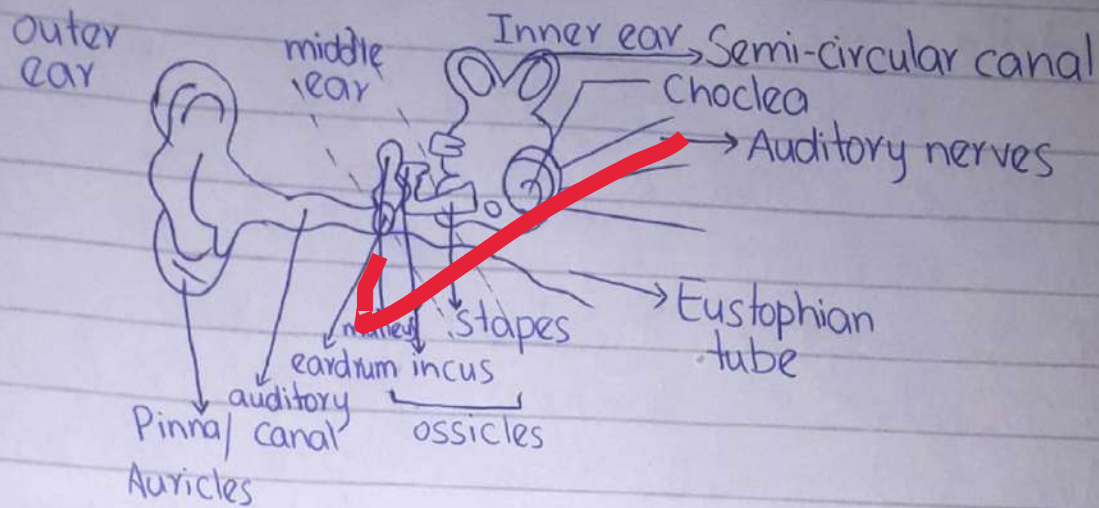 outer
ear
middle
ear
Inner ear
Semi-circular canal
Choclea
Auditory nerves
Eustophian
tube
malleus
stapes
eardrum incus
auditory
canal
ossicles
Pinna/
Auricles